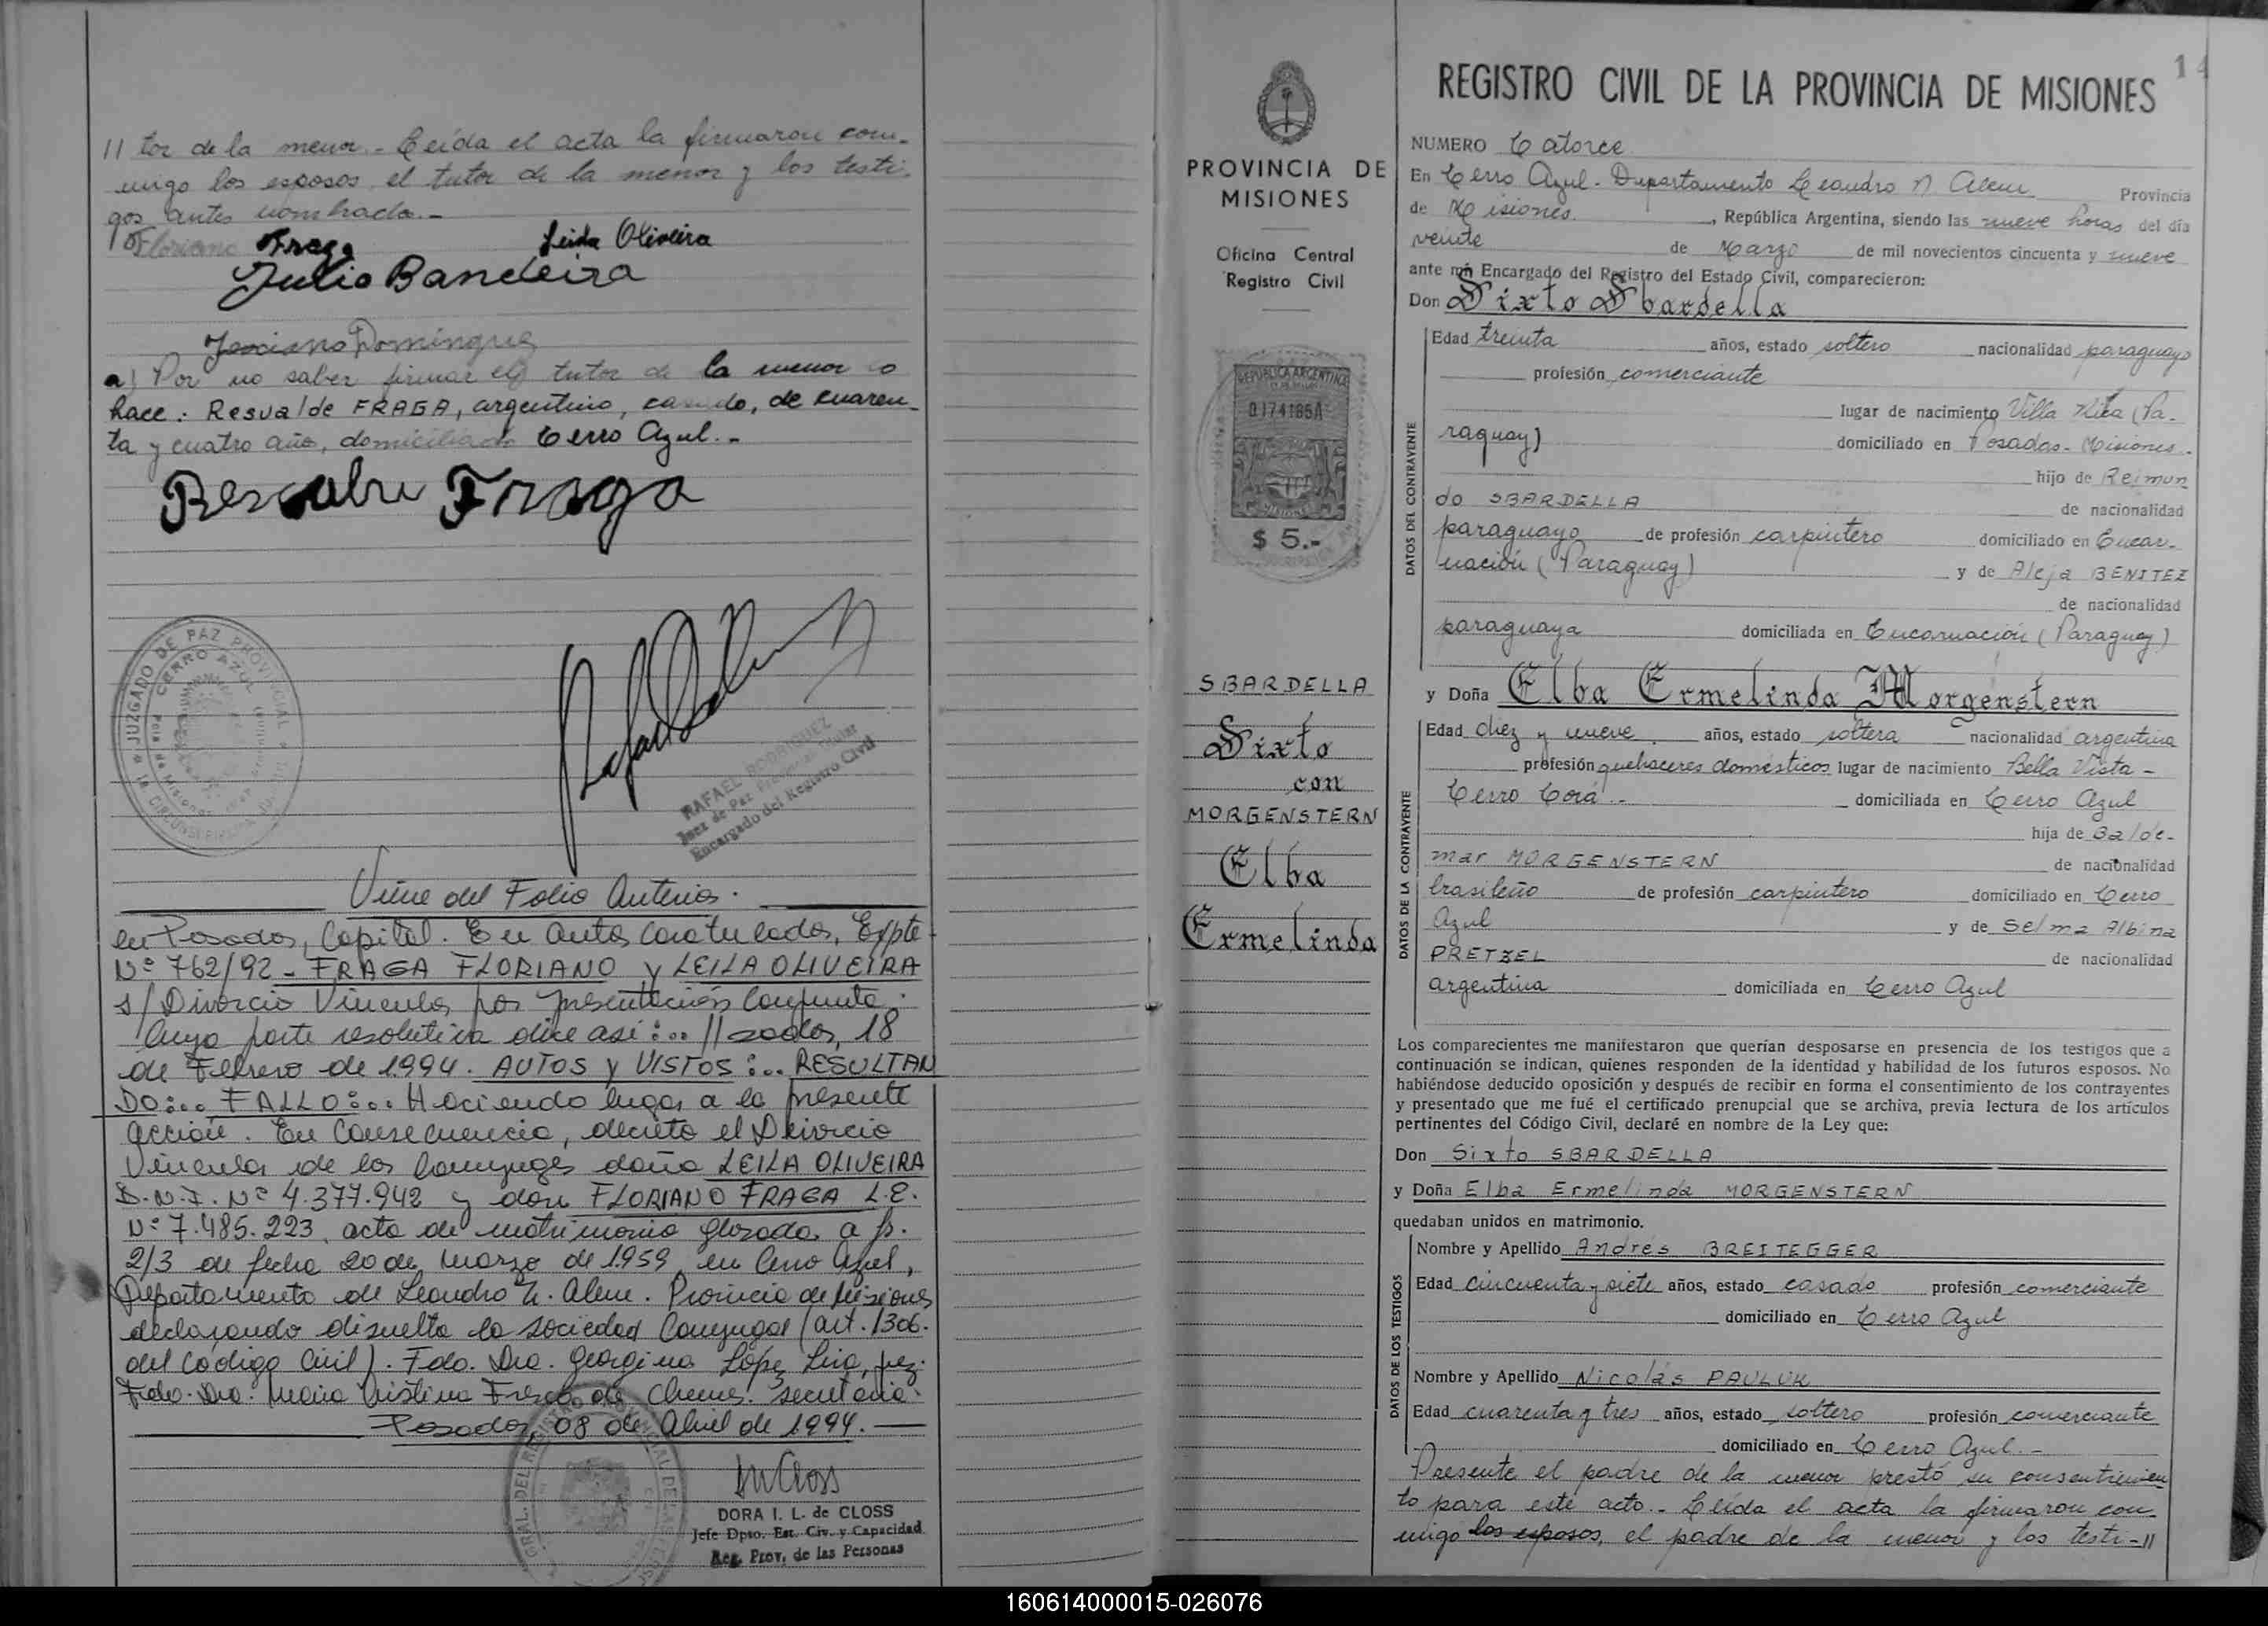 // tor de la menor.- Leída el acta la firmaron con-
migo los esposos, el tutor de la menor y los testi-
gos antes nombrado.-
Floriano Fraga Leida Oliveira
Julio Bandeira
Domingues
a) Por no saber firmar el tutor de la menor lo
hace: Resualde FRAGA, argentino, casado, de cuaren-
ta y cuatro año, domiciliado Cerro Azul.-
Fraga
JUZGADO DE PAZ PROVINCIAL
CERRO AZUL
RAFAEL RODRIGUEZ
Juez de Paz
Encargado del Registro Civil
Viene del Folio Anterior.
en Posadas, Capital. En autos caratulados, Expte
Nº 762/92 - FRAGA FLORIANO y LEILA OLIVEIRA
s/ Divorcio Vincular por presentación conjunta.
Cuya parte resolutiva dice así:.. //sadas, 18
de Febrero de 1994. AUTOS y VISTOS:.. RESULTAN
DO:... FALLO:.. Haciendo lugar a la presente
acción. En consecuencia, decreto el Divorcio
Vincular de los conyuges doña LEILA OLIVEIRA
D.N.I. Nº 4.377.942 y don FLORIANO FRAGA L.E.
Nº 7.485.223, acta de matrimonio glosada a fs.
2/3 de fecha 20 de marzo de 1959, en Cerro Azul,
Departamento de Leandro N. Alem. Provincia de Misiones
declarando disuelta la sociedad conyugal (art. 1306.
del Código Civil). Fdo. Dra. Georgina López Liva, juez.
Fdo. Dra. María Cristina de secretaria.
Posadas, 08 de Abril de 1994.
DORA I. L. de CLOSS
Jefe Dpto. Est. Civ. y Capacidad
Reg. Prov. de las Personas
14
PROVINCIA DE
MISIONES
Oficina Central
Registro Civil
REPUBLICA ARGENTINA
0174185A
MISIONES
$ 5.-
SBARDELLA
Sixto
con
MORGENSTERN
Elba
Ermelinda
REGISTRO CIVIL DE LA PROVINCIA DE MISIONES
NUMERO Catorce
En Cerro Azul - Departamento Leandro N Alem Provincia
de Misiones, República Argentina, siendo las nueve horas del día
veinte de Marzo de mil novecientos cincuenta y nueve
ante mí Encargado del Registro del Estado Civil, comparecieron:
Don Sixto Sbardella
DATOS DEL CONTRAYENTE
Edad treinta años, estado soltero nacionalidad paraguayo
profesión comerciante
lugar de nacimiento Villa Rica (Pa-
raguay) domiciliado en Posadas - Misiones.
hijo de Reimun
do SBARDELLA de nacionalidad
paraguayo de profesión carpintero domiciliado en Encar-
nación (Paraguay) y de Aleja BENITEZ
de nacionalidad
paraguaya domiciliada en Encarnación (Paraguay)
y Doña Elba Ermelinda Morgenstern
DATOS DE LA CONTRAYENTE
Edad diez y nueve años, estado soltera nacionalidad argentina
profesión quehaceres domésticos lugar de nacimiento Bella Vista -
Cerro Corá.- domiciliada en Cerro Azul
hija de Balde-
mar MORGENSTERN de nacionalidad
brasileño de profesión carpintero domiciliado en Cerro
Azul y de Selma Albina
PRETZEL de nacionalidad
argentina domiciliada en Cerro Azul
Los comparecientes me manifestaron que querían desposarse en presencia de los testigos que a
continuación se indican, quienes responden de la identidad y habilidad de los futuros esposos. No
habiéndose deducido oposición y después de recibir en forma el consentimiento de los contrayentes
y presentado que me fué el certificado prenupcial que se archiva, previa lectura de los artículos
pertinentes del Código Civil, declaré en nombre de la Ley que:
Don Sixto SBARDELLA
y Doña Elba Ermelinda MORGENSTERN
quedaban unidos en matrimonio.
DATOS DE LOS TESTIGOS
Nombre y Apellido Andrés BREITEGGER
Edad cincuenta y siete años, estado casado profesión comerciante
domiciliado en Cerro Azul
Nombre y Apellido Nicolás PAULUK
Edad cuarenta y tres años, estado soltero profesión comerciante
domiciliado en Cerro Azul.-
Presente el padre de la menor prestó su consentimien
to para este acto.- Leída el acta la firmaron con-
migo los esposos, el padre de la menor y los testi-//
160614000015-026076